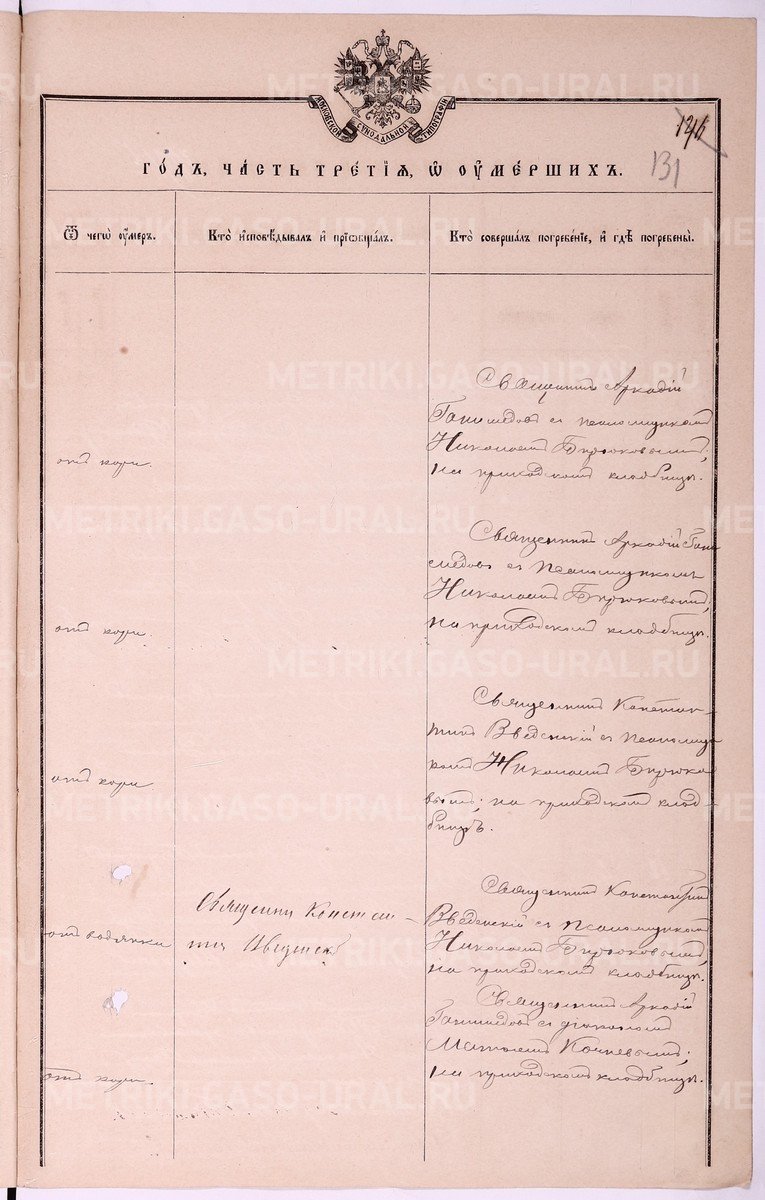 МОСКОВСКОЙ СѴНОДАЛЬНОЙ ТИПОГРАФІИ
146
131
ГОДЪ, ЧАСТЬ ТРЕТІЯ, Ѡ ОУМЕРШИХЪ.
Ѿ чегѡ оумеръ.
Кто исповѣдывалъ и пріобщалъ.
Кто совершалъ погребеніе, и гдѣ погребены.
Священникъ Аркадій
съ псаломщикомъ
Николаемъ Бирюковымъ;
на приходскомъ кладбищѣ.
отъ кори.
Священникъ Аркадій
съ Псаломщикомъ
Николаемъ Бирюковымъ,
на приходскомъ кладбищѣ.
отъ кори.
Священникъ Констан-
тинъ Введенскій съ псаломщи
комъ Николаемъ Бирюко
вымъ; на приходскомъ клад-
бищѣ.
отъ кори
Священникъ Константинъ
Введенскій съ Псаломщикомъ
Николаемъ Бирюковымъ,
на приходскомъ кладбищѣ.
отъ водянки
Священникъ Констан-
тинъ
Священникъ Аркадій
съ діакономъ
на приходскомъ кладбищѣ.
отъ кори.
METRIKI.GASO-URAL.RU